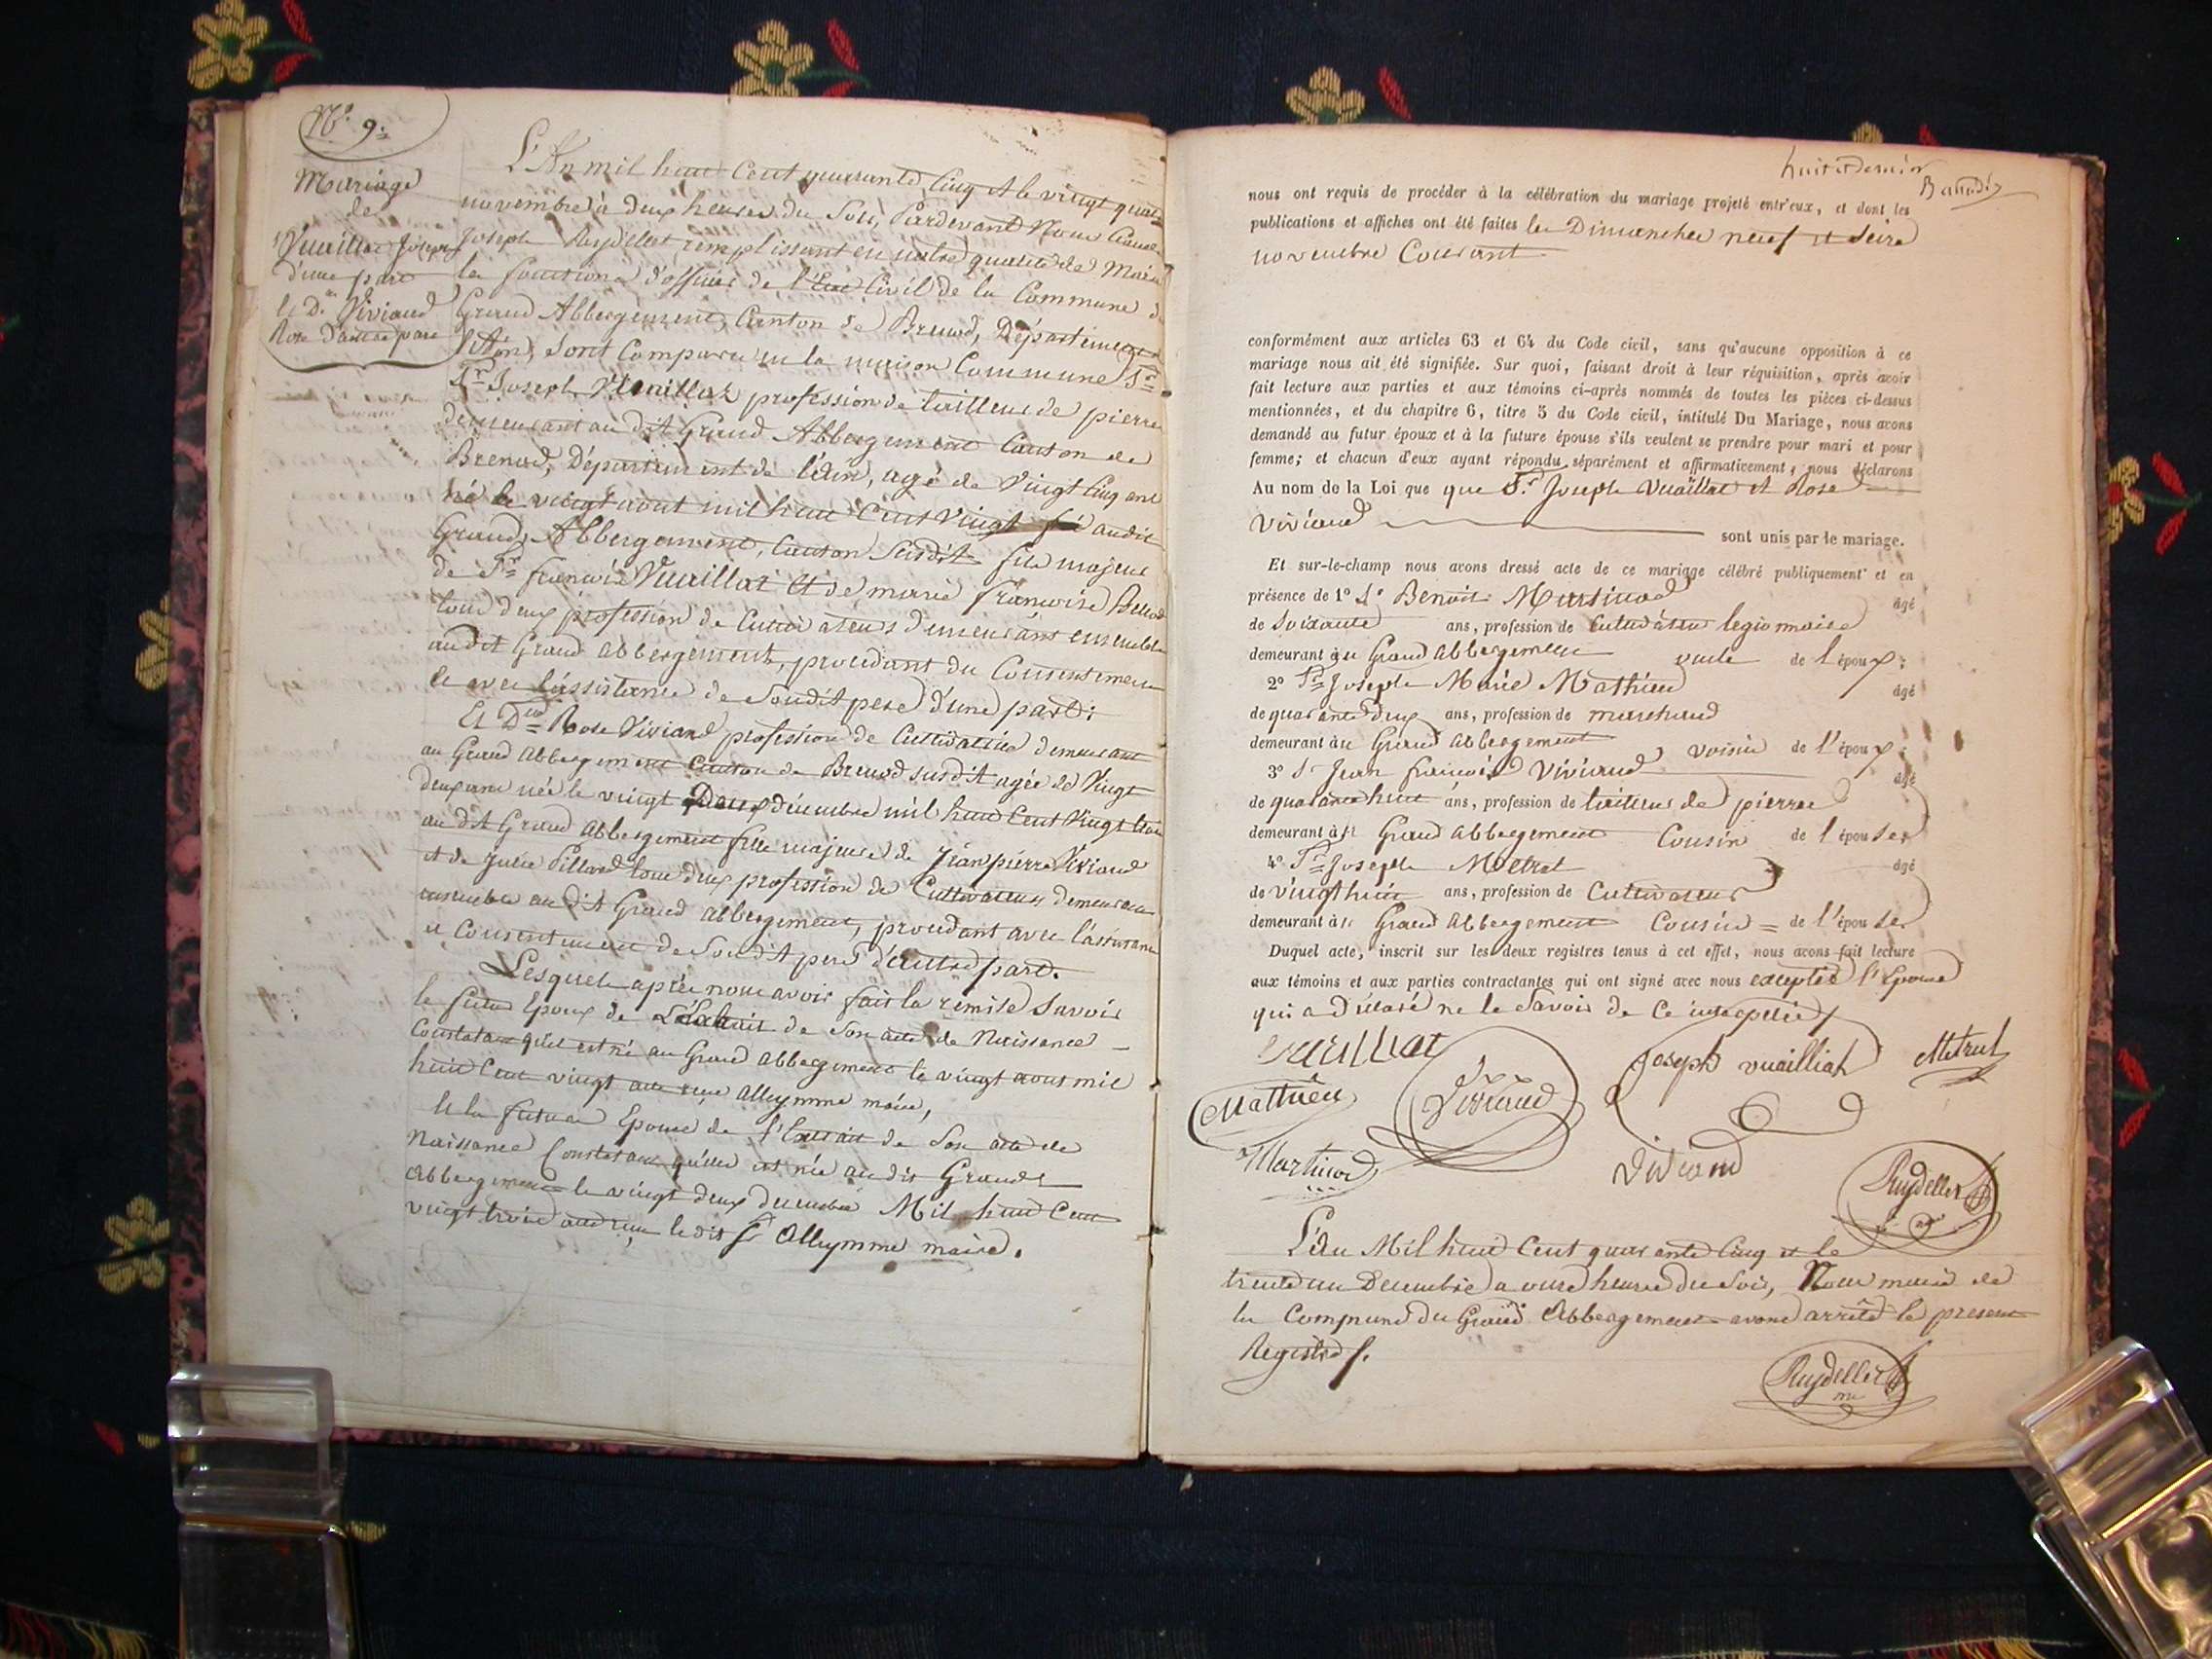 N° 9.
Mariage
de
Vuaillat Joseph
d'une part
et Dlle Viviand
Rose d'autre part
L'An mil huit Cent quarante Cinq et le vingt quatre
novembre à deux heures du Soir, Pardevant Nous Claude
Joseph Ruydellet remplissant en notre qualité de Maire
les fonctions d'officier de l'Etat Civil de la Commune du
Grand Abbergement, Canton de Brenod, Département
de l'Ain, sont Comparu en la maison Commune
Sr Joseph Vuaillat profession de tailleur de pierre
demeurant au dit Grand Abbergement Canton de
Brenod, Département de l'Ain, agé de Vingt Cinq ans
né le vingt aout mil huit Cent Vingt audit
Grand Abbergement, Canton Susdit fils majeur
de Sr francois Vuaillat et de marie francoise
tous deux profession de Cultivateurs demeurant ensemble
audit Grand abbergement, procédant du Consentement
et avec l'assistance de Soudit pere d'une part;
Et Dlle Rose Viviand profession de Cultivatrice demeurant
au Grand Abbergement Canton de Brenod susdit agée de Vingt
deux ans née le vingt Deux décembre mil huit Cent Vingt trois
au dit Grand abbergement fille majeure de Jean pierre Viviand
et de Julie Pilland tous deux profession de Cultivateurs demeurant
ensemble au dit Grand abbergement, procédant avec l'assistance
et Consentement de Soudit pere d'autre part.
Lesquels après nous avoir fait la remise Savoir
le futur Epoux de L'Extrait de Son acte de Naissance
Constatant qu'il est né au Grand abbergement le vingt aout mil
huit Cent vingt acte reçu alleymme maire,
Et la future Epouse de l'Extrait de Son acte de
Naissance Constatant qu'elle est née au dit Grand
Abbergement le vingt deux decembre Mil huit Cent
vingt trois acte reçu le dit Sr Alleymme maire.
huit et dernier
nous ont requis de procéder à la célébration du mariage projeté entr'eux, et dont les
publications et affiches ont été faites les Dimanches neuf et Seize
novembre Courant
conformément aux articles 63 et 64 du Code civil, sans qu'aucune opposition à ce
mariage nous ait été signifiée. Sur quoi, faisant droit à leur réquisition, après avoir
fait lecture aux parties et aux témoins ci-après nommés de toutes les pièces ci-dessus
mentionnées, et du chapitre 6, titre 5 du Code civil, intitulé Du Mariage, nous avons
demandé au futur époux et à la future épouse s'ils veulent se prendre pour mari et pour
femme; et chacun d'eux ayant répondu séparément et affirmativement, nous déclarons
Au nom de la Loi que que Sr Joseph Vuaillat et Rose
Viviand sont unis par le mariage.
Et sur-le-champ nous avons dressé acte de ce mariage célébré publiquement et en
présence de 1° Sr Benoit Martinod âgé
de Soixante ans, profession de Cultivateur legionnaire
demeurant au Grand abbergement oncle de l'époux;
2° Sr Joseph Marie Mathieu âgé
de quarante deux ans, profession de marchand
demeurant au Grand abbergement voisin de l'époux;
3° Sr Jean francois Viviand âgé
de quarante huit ans, profession de tailleur de pierre
demeurant à Grand abbergement Cousin de l'épouse;
4° Sr Joseph Metrat âgé
de vingt huit ans, profession de Cultivateur
demeurant à Grand abbergement Cousin de l'épouse
Duquel acte, inscrit sur les deux registres tenus à cet effet, nous avons fait lecture
aux témoins et aux parties contractantes qui ont signé avec nous exceptée l'Epouse
qui a déclaré ne le Savoir de Ce interpellée
Vuaillat
Joseph Vuailliat
Metrat
Mathieu
Viviand
Martinod
Viviand
Ruydellet
L'an Mil huit Cent quarante Cinq et le
trente un Decembre a onze heures du Soir, Nous maire de
la Commune du Grand Abbergement avons arrêté le present
Registre.
Ruydellet
me